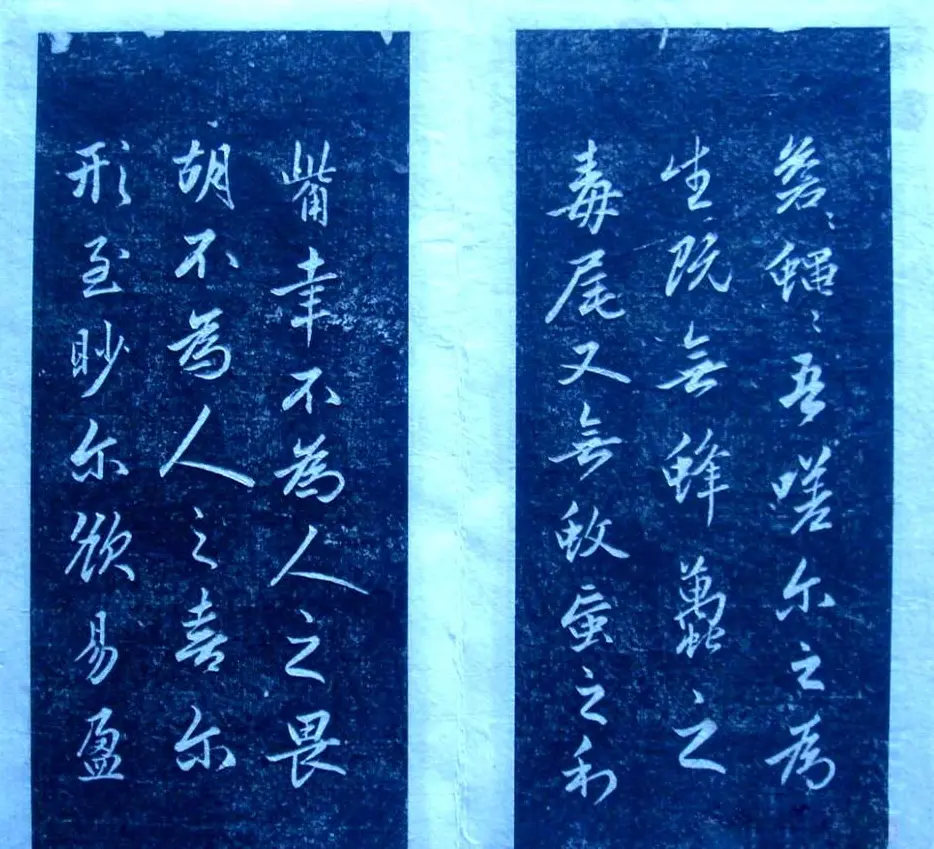 蒼々蠅々吾嗟尔之為
生既無蜂蠆之
毒尾又無蚊䖟之利
觜幸不為人之畏
胡不為人之喜尔
形至眇尔欲易盈